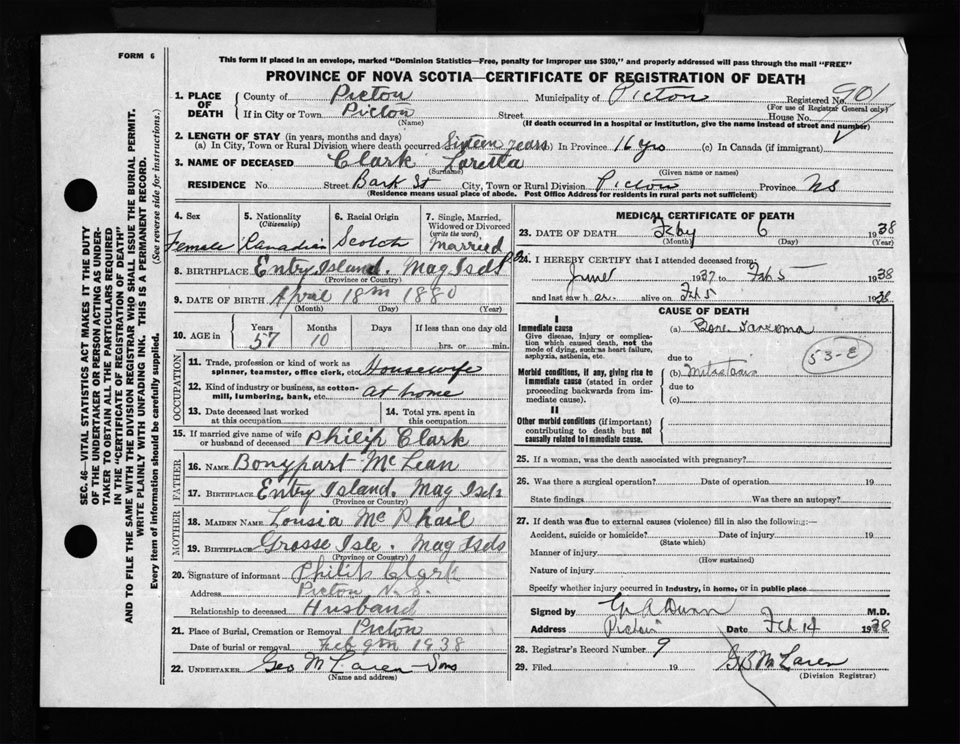 FORM 6
This form if placed in an envelope, marked "Dominion Statistics—Free, penalty for improper use $300," and properly addressed will pass through the mail "FREE"
PROVINCE OF NOVA SCOTIA—CERTIFICATE OF REGISTRATION OF DEATH
SEC. 46—VITAL STATISTICS ACT MAKES IT THE DUTY
OF THE UNDERTAKER OR PERSON ACTING AS UNDER-
TAKER TO OBTAIN ALL THE PARTICULARS REQUIRED
IN THE "CERTIFICATE OF REGISTRATION OF DEATH"
AND TO FILE THE SAME WITH THE DIVISION REGISTRAR WHO SHALL ISSUE THE BURIAL PERMIT.
WRITE PLAINLY WITH UNFADING INK. THIS IS A PERMANENT RECORD.
Every item of information should be carefully supplied. (See reverse side for instructions.)
1. PLACE OF DEATH County of Pictou Municipality of Pictou Registered No. 901
(For use of Registrar General only)
If in City or Town Pictou Street House No.
(Name) (If death occurred in a hospital or institution, give the name instead of street and number)
2. LENGTH OF STAY (in years, months and days)
(a) In City, Town or Rural Division where death occurred Sixteen years (b) In Province 16 yrs (c) In Canada (if immigrant)
3. NAME OF DECEASED Clark Loretta
(Surname) (Given name or names)
RESIDENCE No. Street St City, Town or Rural Division Pictou Province NS
(Residence means usual place of abode. Post Office Address for residents in rural parts not sufficient)
4. Sex Female
5. Nationality (Citizenship) Kanadian
6. Racial Origin Scotch
7. Single, Married, Widowed or Divorced (write the word) Married
8. BIRTHPLACE Entry Island. Mag Isds
(Province or Country)
9. DATE OF BIRTH April 18th 1880
(Month) (Day) (Year)
10. AGE in Years 57 Months 10 Days If less than one day old hrs. or min.
OCCUPATION
11. Trade, profession or kind of work as spinner, teamster, office clerk, etc. Housewife
12. Kind of industry or business, as cotton-mill, lumbering, bank, etc. at home
13. Date deceased last worked at this occupation
14. Total yrs. spent in this occupation
15. If married give name of wife or husband of deceased Philip Clark
FATHER
16. NAME Bonypart McLean
17. BIRTHPLACE Entry Island. Mag Isds
(Province or Country)
MOTHER
18. MAIDEN NAME Lousia McPhail
19. BIRTHPLACE Grosse Isle. Mag Isds
(Province or Country)
20. Signature of informant Philip Clark
Address Pictou N.S.
Relationship to deceased Husband
21. Place of Burial, Cremation or Removal Pictou
Date of burial or removal Feb 9th 1938
22. UNDERTAKER Geo McLaren Sons
(Name and address)
MEDICAL CERTIFICATE OF DEATH
23. DATE OF DEATH Feby 6 1938
(Month) (Day) (Year)
I HEREBY CERTIFY that I attended deceased from:
June 1937 to Feb 5 1938
and last saw her alive on Feb 5 1938
CAUSE OF DEATH
I
Immediate cause (a) Bone Sarcoma
Give disease, injury or complication which caused death, not the mode of dying, such as heart failure, asphyxia, asthenia, etc.
due to
53-E
Morbid conditions, if any, giving rise to immediate cause (stated in order proceeding backwards from immediate cause).
(b)
due to
(c)
II
Other morbid conditions (if important) contributing to death but not causally related to immediate cause.
25. If a woman, was the death associated with pregnancy?
26. Was there a surgical operation? Date of operation 19
State findings Was there an autopsy?
27. If death was due to external causes (violence) fill in also the following:—
Accident, suicide or homicide? Date of injury 19
(State which)
Manner of injury
(How sustained)
Nature of injury
Specify whether injury occurred in industry, in home, or in public place
Signed by Dunn M.D.
Address Pictou Date Feb 14 1938
28. Registrar's Record Number 9
29. Filed 19 G B McLaren
(Division Registrar)